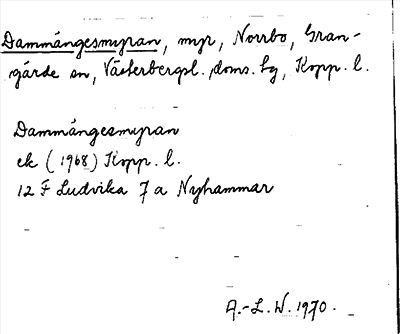 Dammängesmyran, myr, Norrbo, Gran-
gärde sn, Västerbergsl. doms. hg, Kopp. l.
Dammängesmyran
ek (1968) Kopp. l.
12 F Ludvika 7 a Nyhammar
A.-L. W. 1970.